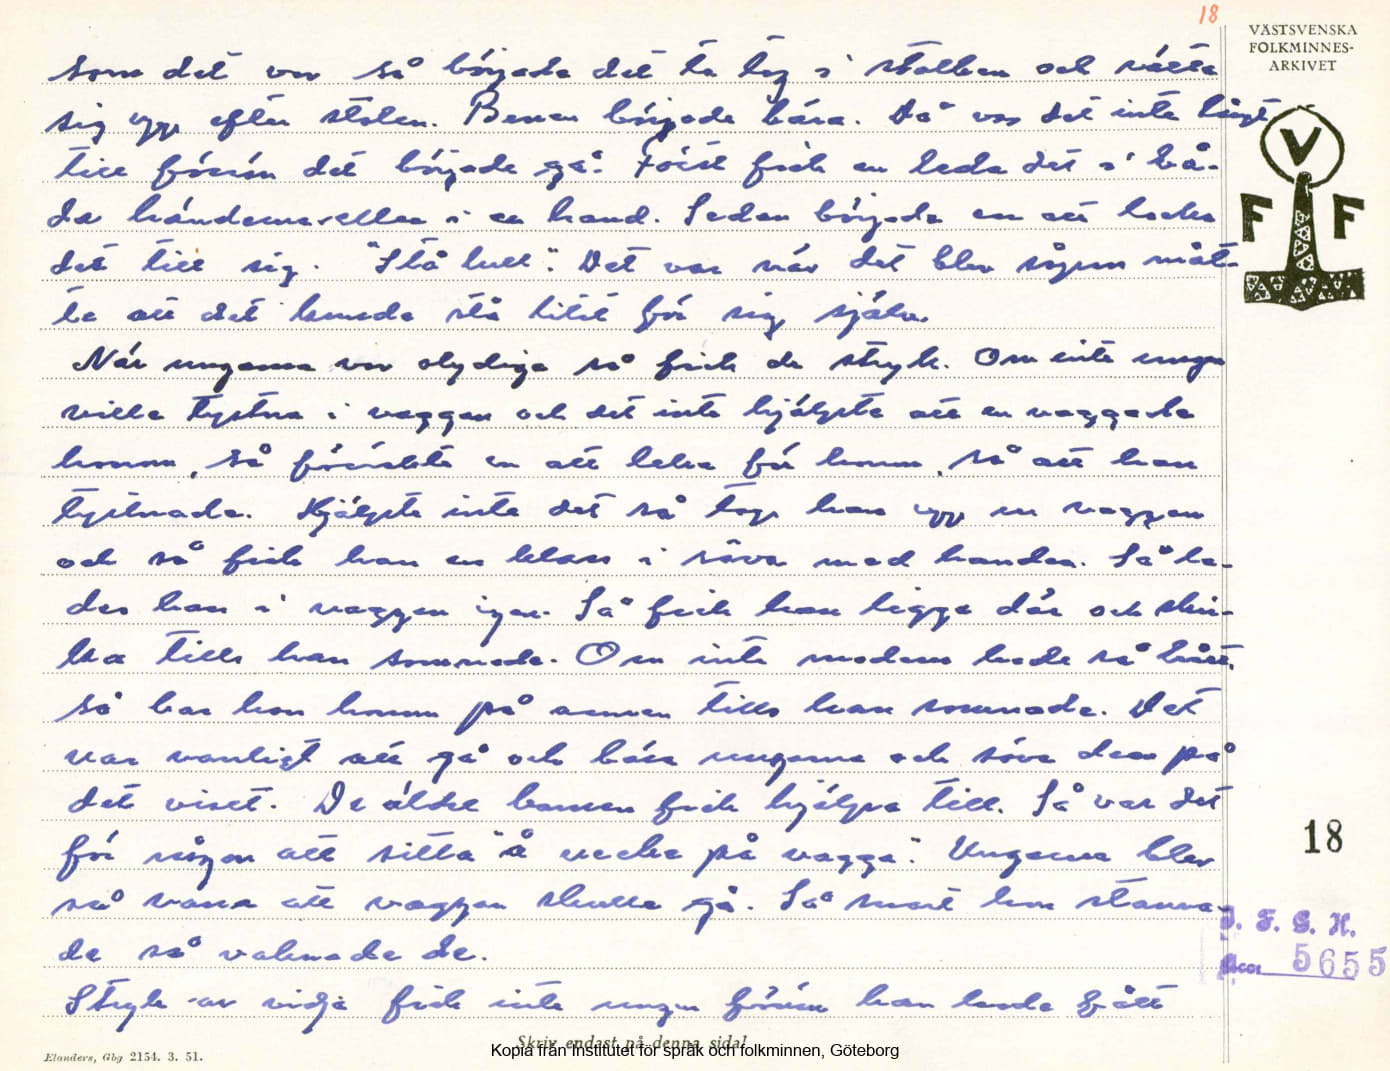 18
VÄSTSVENSKA
FOLKMINNES-
ARKIVET
V
F F
som det var så började det ta tag i stolken och rätta
sig upp efter stolen. Benen började bära. Då var det inte långt
till förrän det började gå. Först fick en leda det i bå-
da händerna eller i en hand. Sedan började en att locka
det till sig. "Stå lull". Det var när det blev någon måt-
ta att det kunde stå litet för sig själv.
När ungarna var olydiga så fick de stryk. Om inte ungen
ville tystna i vaggan och det inte hjälpte att en vaggade
honom, så försökte en att leka för honom, så att han
tystnade. Hjälpte inte det så togs han upp ur vaggan
och så fick han en klass i röva med handen. Så la-
des han i vaggan igen. Så fick han ligga där och skri-
ka tills han somnade. Om inte modern hade så brått,
så bar hon honom på armen tills han somnade. Det
var vanligt att gå och bära ungarna och söva dem på
det viset. De äldre barnen fick hjälpa till. Så var det
för någon att sitta "å vecke på vagga". Ungarna blev
så vana att vaggan skulle gå. Så snart hon stanna-
de så vaknade de.
Stryk av vidja fick inte ungen förrän han hade fått
18
I. F. G. H.
Acc. 5655
Elanders, Gbg 2154. 3. 51.
Skriv endast på denna sida!
Kopia från Institutet för språk och folkminnen, Göteborg